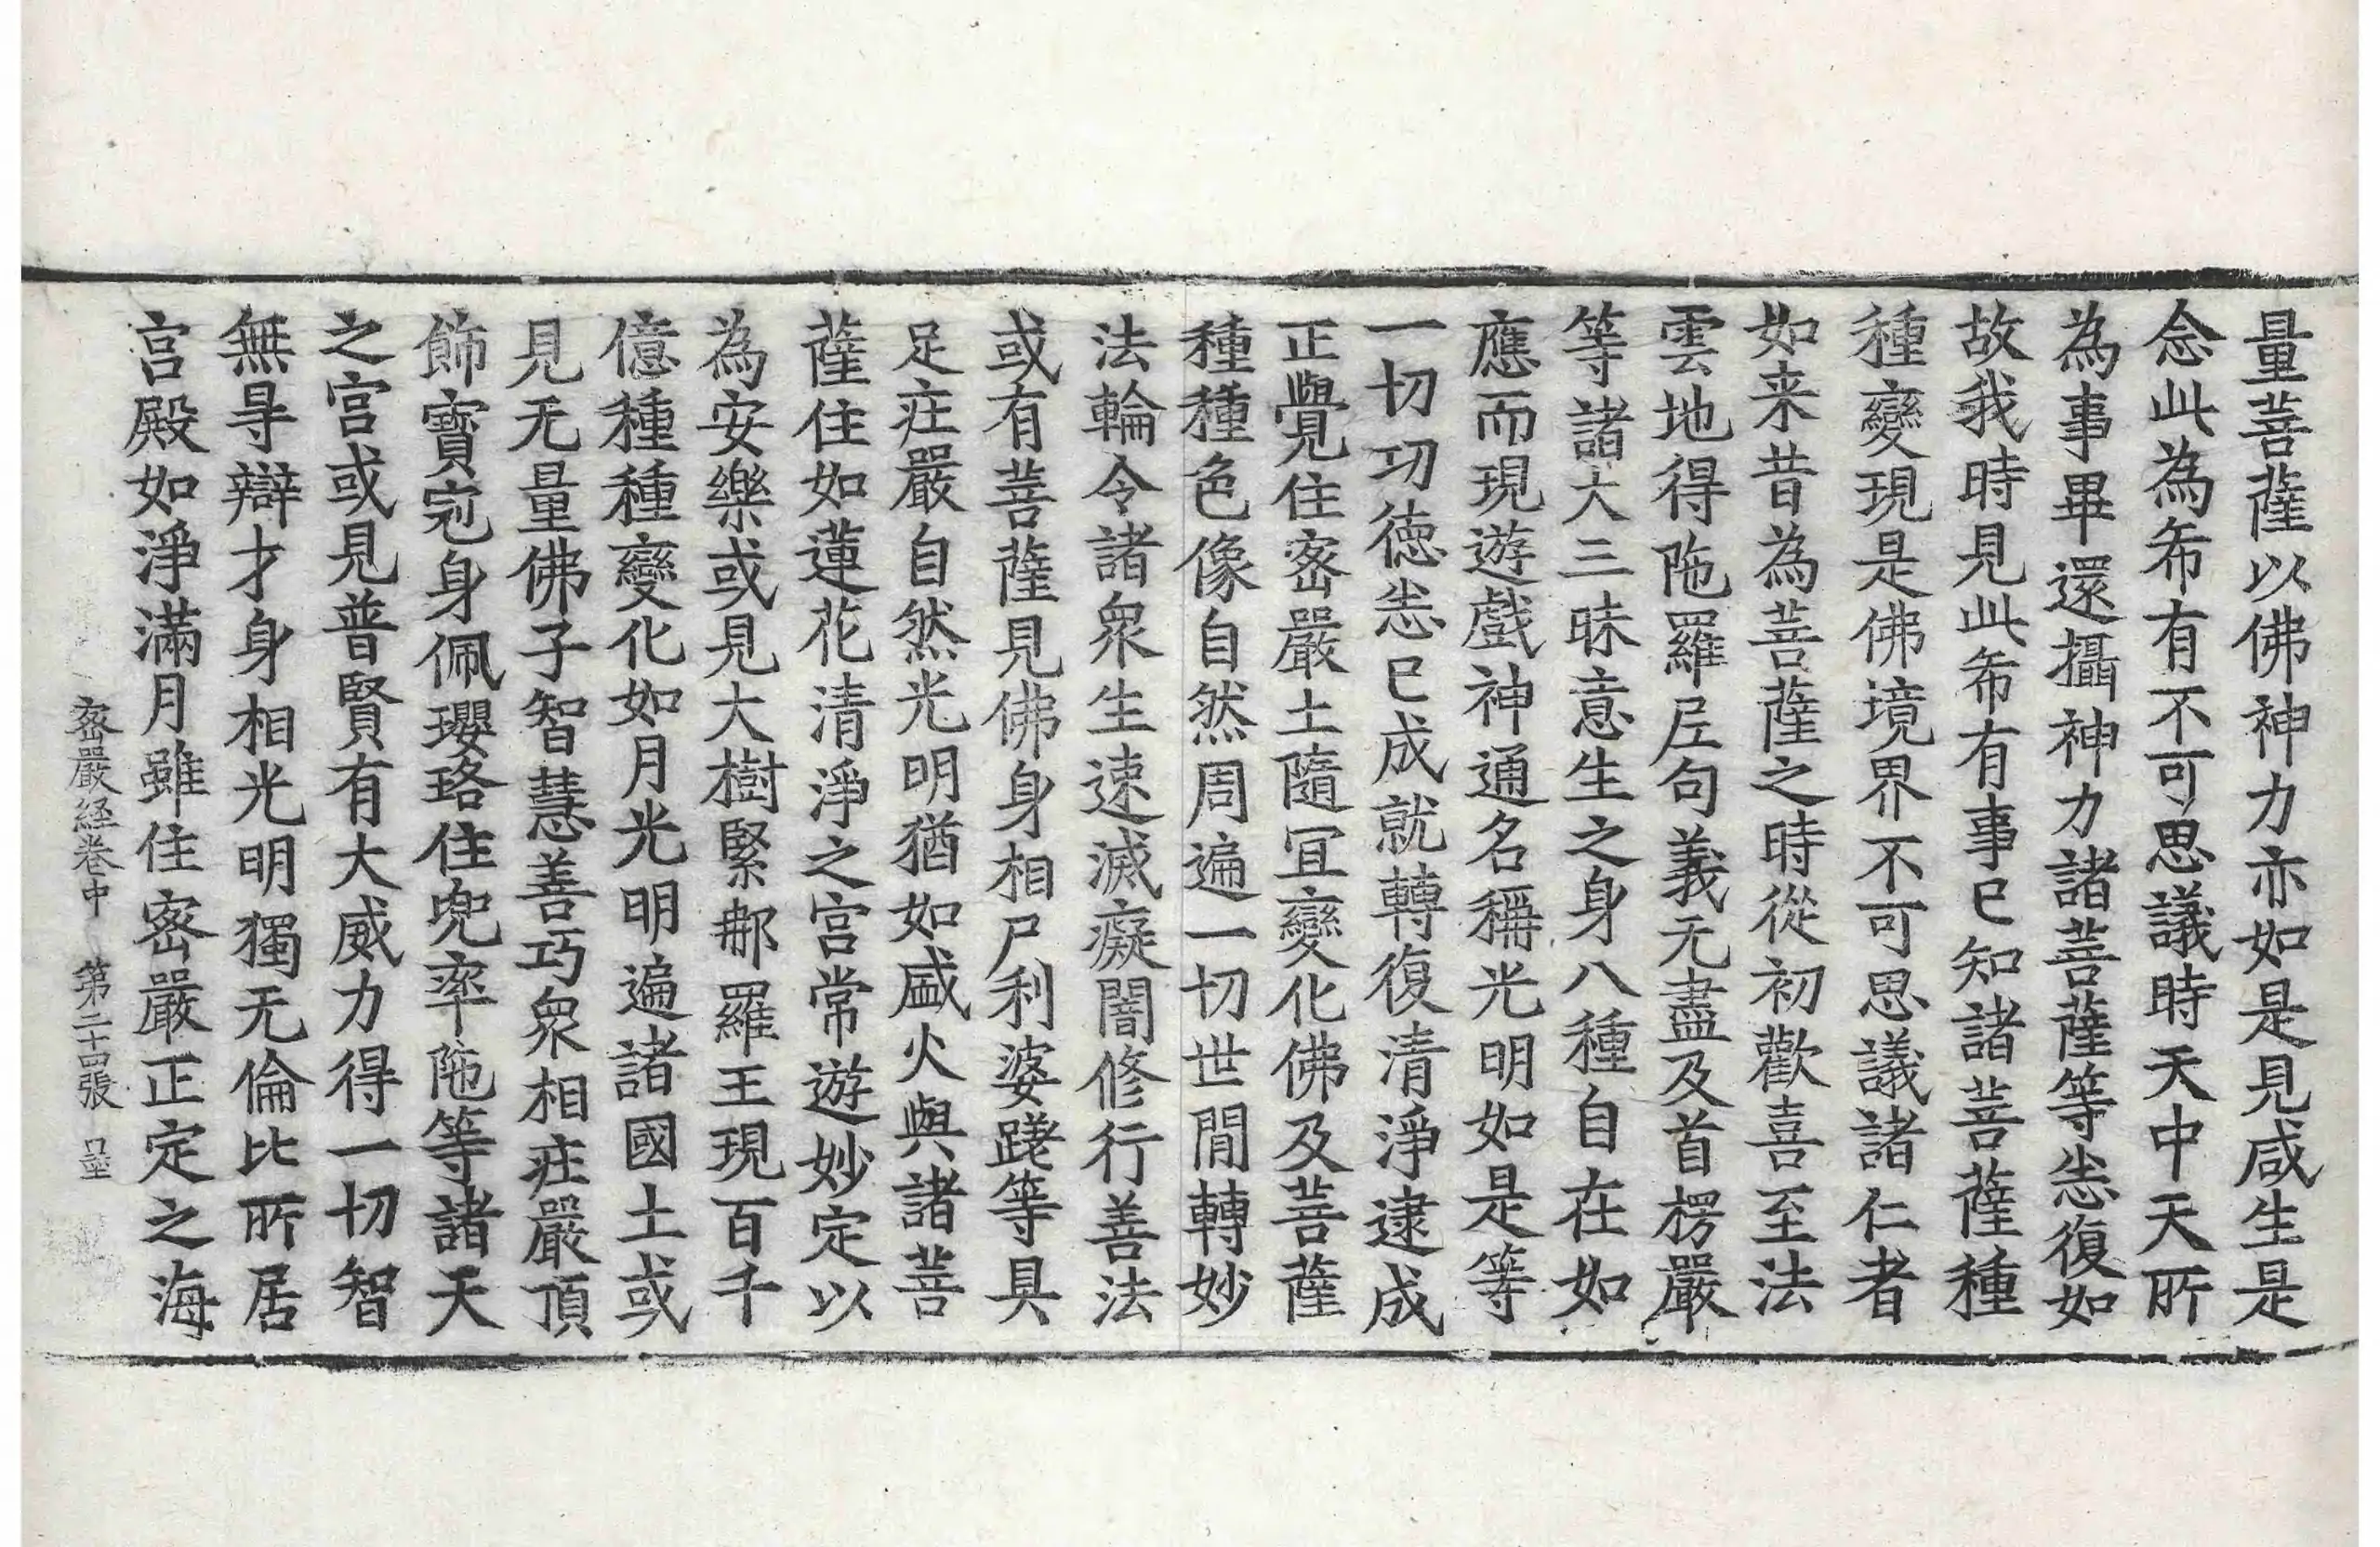 量菩薩以佛神力亦如是見咸生是
念此為希有不可思議時天中天所
為事畢還攝神力諸菩薩等悉復如
故我時見此希有事已知諸菩薩種
種變現是佛境界不可思議諸仁者
如来昔為菩薩之時從初歡喜至法
雲地得陁羅尼句義无盡及首楞嚴
等諸大三昧意生之身八種自在如
應而現遊戲神通名稱光明如是等
一切功德悉已成就轉復清淨逮成
正覺住密嚴土隨宜變化佛及菩薩
種種色像自然周遍一切世間轉妙
法輪令諸衆生速滅癡闇修行善法
或有菩薩見佛身相尸利婆蹉等具
足莊嚴自然光明猶如盛火與諸菩
薩住如蓮花清淨之宮常遊妙定以
為安樂或見大樹緊那羅王現百千
億種種變化如月光明遍諸國土或
見无量佛子智慧善巧衆相莊嚴頂
飾寶冠身佩瓔珞住兜率陁等諸天
之宮或見普賢有大威力得一切智
無㝵辯才身相光明獨无倫比所居
宮殿如淨滿月雖住密嚴正定之海
密嚴経卷中 第二十四張